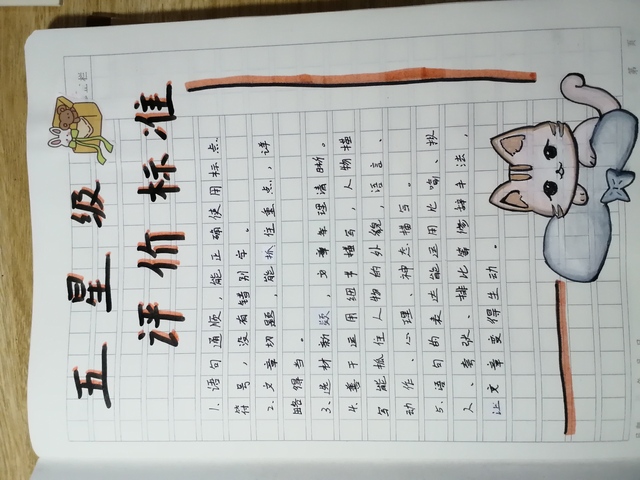 五星级
评价标准
1、语句通顺，能正确使用标点
符号，没有错别字。
2、文章切题，能抓住重点，详
略得当。
3、选材新颖，文章条理清晰。
4、善于运用细节描写，人物描
写能抓住人物的外貌，语言、
动作、心理、神态描写。
5、语句的表达能运用比喻、拟
人、夸张、排比等修辞手法，
让文章变得生动。